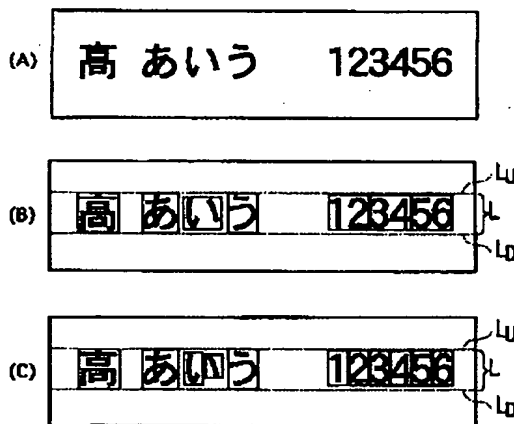 (A) 高 あいう 123456
LU
(B) 高 あいう 123456 L
LD
LU
(C) 高 あいう 123456 L
LD